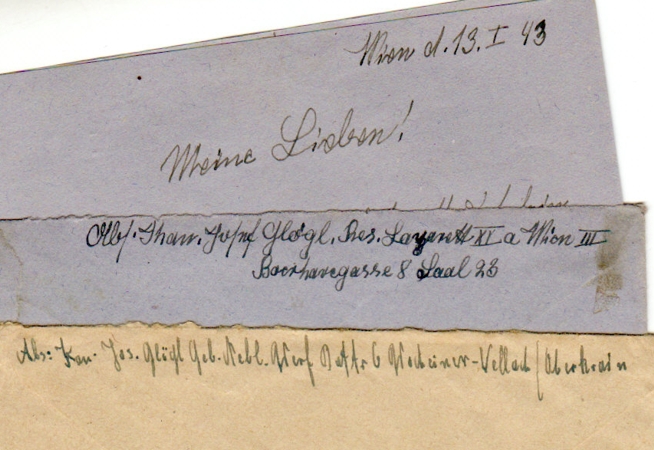 Wien d. 13. I 43
Meine Lieben!
Abs. Josef Glögl, Res. Lazarett XI a Wien III
Boerhavegasse 8 Saal 23
Abs: Kan. Jos. Glögl Geb. Nebl. Werf Battr 6 Wocheiner-Vellach / Oberkrain